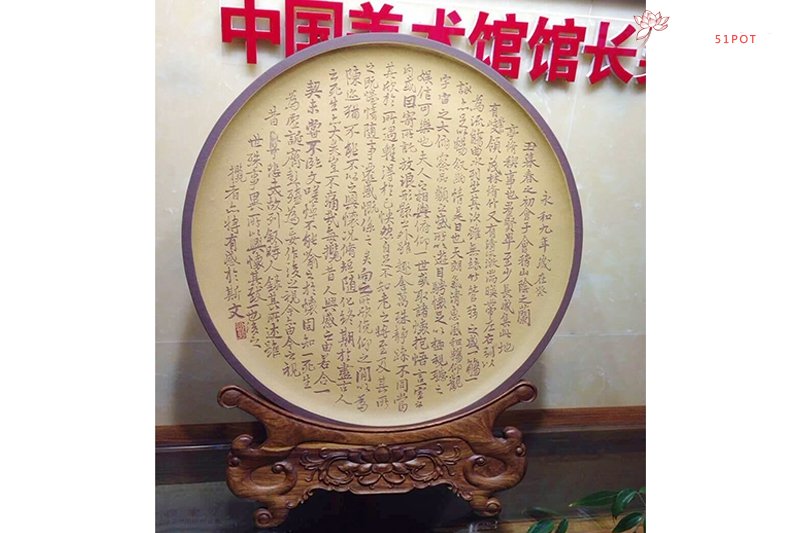 中国美术馆馆长
51POT
永和九年歲在癸
丑暮春之初會于會稽山陰之蘭
亭脩稧事也羣賢畢至少長咸集此地
有峻領茂林脩竹又有清流激湍暎帶左右引以
為流觴曲水列坐其次雖無絲竹管弦之盛一觴一
詠亦足以暢敘幽情是日也天朗氣清惠風和暢仰觀
宇宙之大俯察品類之盛所以遊目騁懷足以極視聽之
娛信可樂也夫人之相與俯仰一世或取諸懷抱悟言一室之
内或因寄所託放浪形骸之外雖趣舍萬殊靜躁不同當
其欣於所遇暫得於己快然自足不知老之將至及其所
之既惓情隨事遷感慨係之矣向之所欣俛仰之間以為
陳迹猶不能不以之興懷況脩短隨化終期於盡古人
云死生亦大矣豈不痛哉每攬昔人興感之由若合一
契未嘗不臨文嗟悼不能喻之於懷固知一死生
為虛誕齊彭殤為妄作後之視今亦由今之視
昔悲夫故列敘時人錄其所述雖
世殊事異所以興懷其致一也後之
攬者亦將有感於斯文